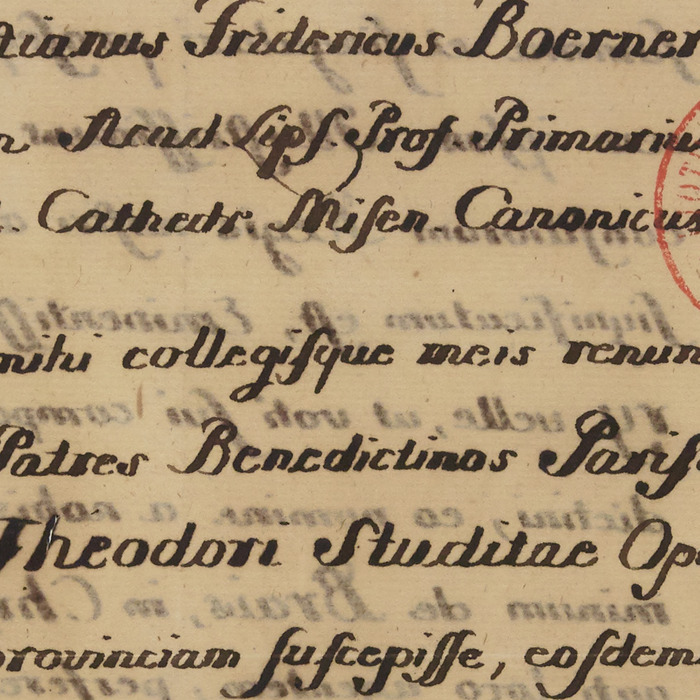 tianus Fridericus Boerner
Acad Lips. Prof. Primariu
Cathedr Misen. Canonicus
mihi collegisque meis renun
Patres Benedictinos Paris
Theodori Studitae Op
provinciam suscepisse, eosdem